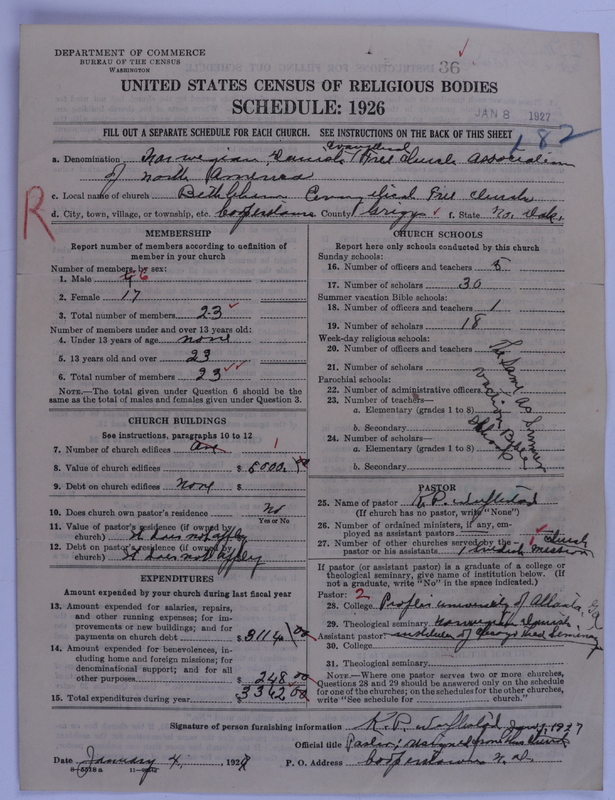 DEPARTMENT OF COMMERCE
BUREAU OF THE CENSUS
WASHINGTON
36
UNITED STATES CENSUS OF RELIGIOUS BODIES
SCHEDULE: 1926
JAN 8 1927
FILL OUT A SEPARATE SCHEDULE FOR EACH CHURCH. SEE INSTRUCTIONS ON THE BACK OF THIS SHEET
182
Evangelical
a. Denomination Norwegian Danish Free Church Association
of North America
c. Local name of church Bethlehem Evangelical Free Church
d. City, town, village, or township, etc. Cooperstown County Griggs f. State No. Dak.
R
MEMBERSHIP
Report number of members according to definition of member in your church
Number of members, by sex:
1. Male 6
2. Female 17
3. Total number of members 23
Number of members under and over 13 years old:
4. Under 13 years of age none
5. 13 years old and over 23
6. Total number of members 23
NOTE.—The total given under Question 6 should be the
same as the total of males and females given under Question 3.
CHURCH BUILDINGS
See instructions, paragraphs 10 to 12
7. Number of church edifices one 1
8. Value of church edifices $ 5000.00
9. Debt on church edifices None $
10. Does church own pastor's residence No
Yes or No
11. Value of pastor's residence (if owned by
church) It does not apply
12. Debt on pastor's residence (if owned by
church) It does not apply
EXPENDITURES
Amount expended by your church during last fiscal year
13. Amount expended for salaries, repairs,
and other running expenses; for im-
provements or new buildings; and for
payments on church debt $ 3114.00
14. Amount expended for benevolences, in-
cluding home and foreign missions; for
denominational support; and for all
other purposes $ 248.00
15. Total expenditures during year $ 3362.00
CHURCH SCHOOLS
Report here only schools conducted by this church
Sunday schools:
16. Number of officers and teachers 5
17. Number of scholars 30
Summer vacation Bible schools:
18. Number of officers and teachers 1
19. Number of scholars 18
Week-day religious schools:
20. Number of officers and teachers
21. Number of scholars
Parochial schools:
22. Number of administrative officers
23. Number of teachers—
a. Elementary (grades 1 to 8)
b. Secondary
24. Number of scholars—
a. Elementary (grades 1 to 8)
b. Secondary
The same as Summer
vacation Bible
School
PASTOR
25. Name of pastor K. P.
(If church has no pastor, write "None")
26. Number of ordained ministers, if any, em-
ployed as assistant pastors
27. Number of other churches served by the 1 Church
pastor or his assistants 1 mission
If pastor (or assistant pastor) is a graduate of a college or
theological seminary, give name of institution below. (If
not a graduate, write "No" in the space indicated.)
Pastor: 2
28. College University of Atlanta, Ga
29. Theological seminary Norwegian Danish
Assistant pastor: institute of Chicago Theol Seminary
30. College
31. Theological seminary
NOTE.—Where one pastor serves two or more churches,
Questions 28 and 29 should be answered only on the schedule
for one of the churches; on the schedules for the other churches,
write "See schedule for church."
Signature of person furnishing information K. P. Jan 4, 1927
Official title Pastor,
Date January 4, 1927 P. O. Address Cooperstown N. D.
8—5518 a